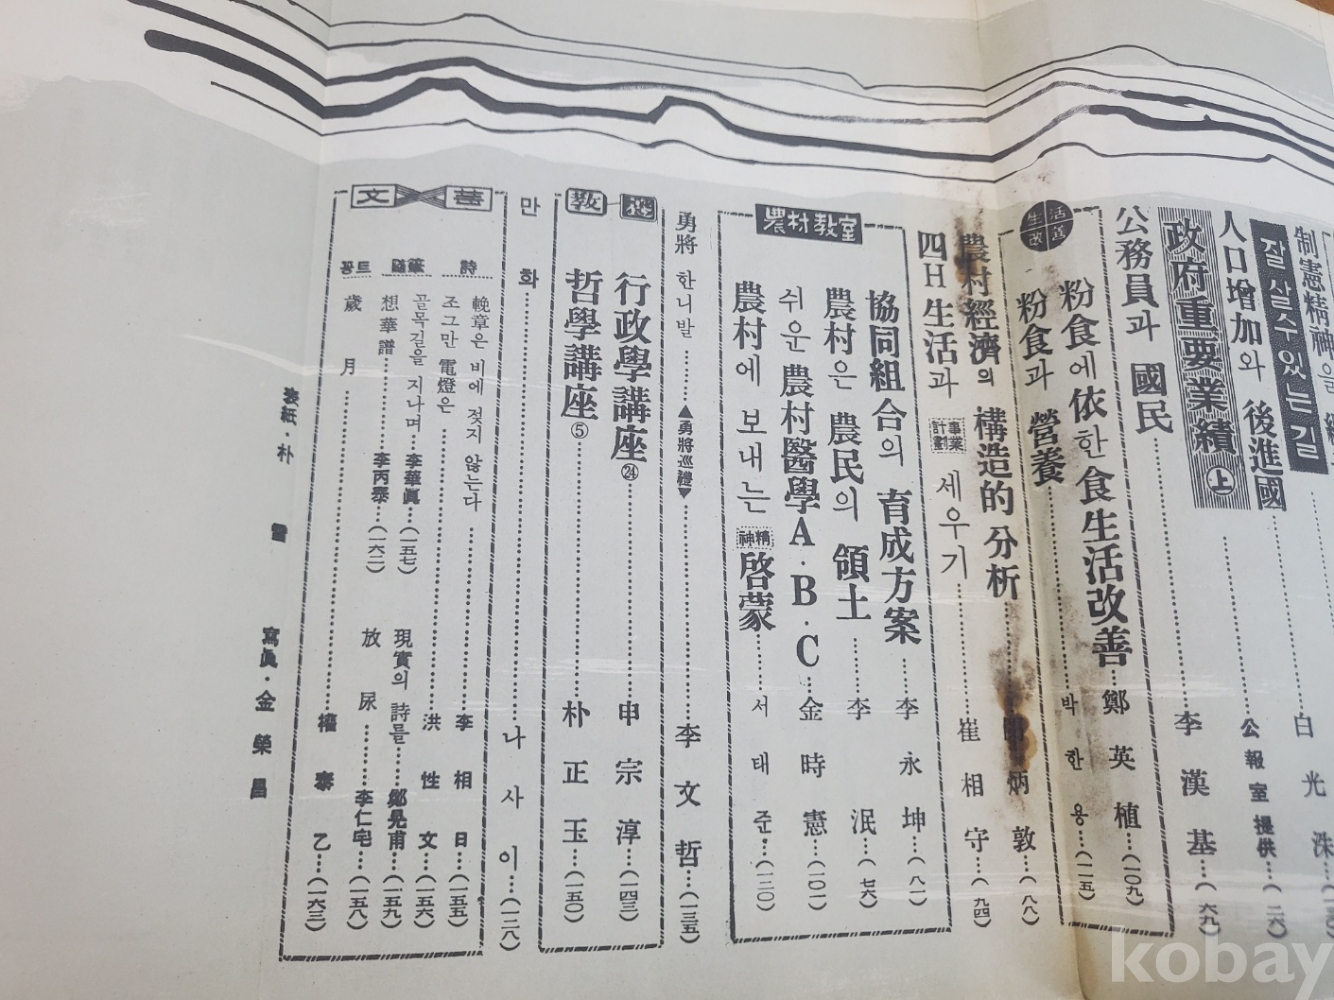 制憲精神을
白光洙
잘 살 수 있는 길
人口增加와 後進國
公報室 提供…(二六)
政府重要業績 上
李漢基…(六九)
公務員과 國民
生活改善
粉食에 依한 食生活改善
鄭英植…(一〇九)
粉食과 營養
박한용…(一一五)
農村經濟의 構造的 分析
炳敦…(八八)
四H生活과 事業計劃 세우기
崔相守…(九四)
農村教室
協同組合의 育成方案
李永坤…(八一)
農村은 農民의 領土
李泯…(七六)
쉬운 農村醫學A·B·C
金時憲…(一〇一)
農村에 보내는 精神 啓蒙
서태준…(一二〇)
勇將 한니발
▲勇將巡禮▼
李文哲…(一三五)
教
行政學講座 ㉔
申宗淳…(一四三)
哲學講座 ⑤
朴正玉…(一五〇)
만화
나사이…(一二八)
文芸
詩
輓章은 비에 젖지 않는다
李相日…(一五五)
조그만 電燈은
洪性文…(一五六)
隨筆
골목길을 지나며…李華眞…(一五七)
現實의 詩를…鄭晃甫…(一五九)
想華譜…李丙泰…(一六二)
放尿…李仁宅…(一五八)
꽁트
歲月
權泰乙…(一六三)
表紙·朴雷
寫眞·金榮昌
kobay